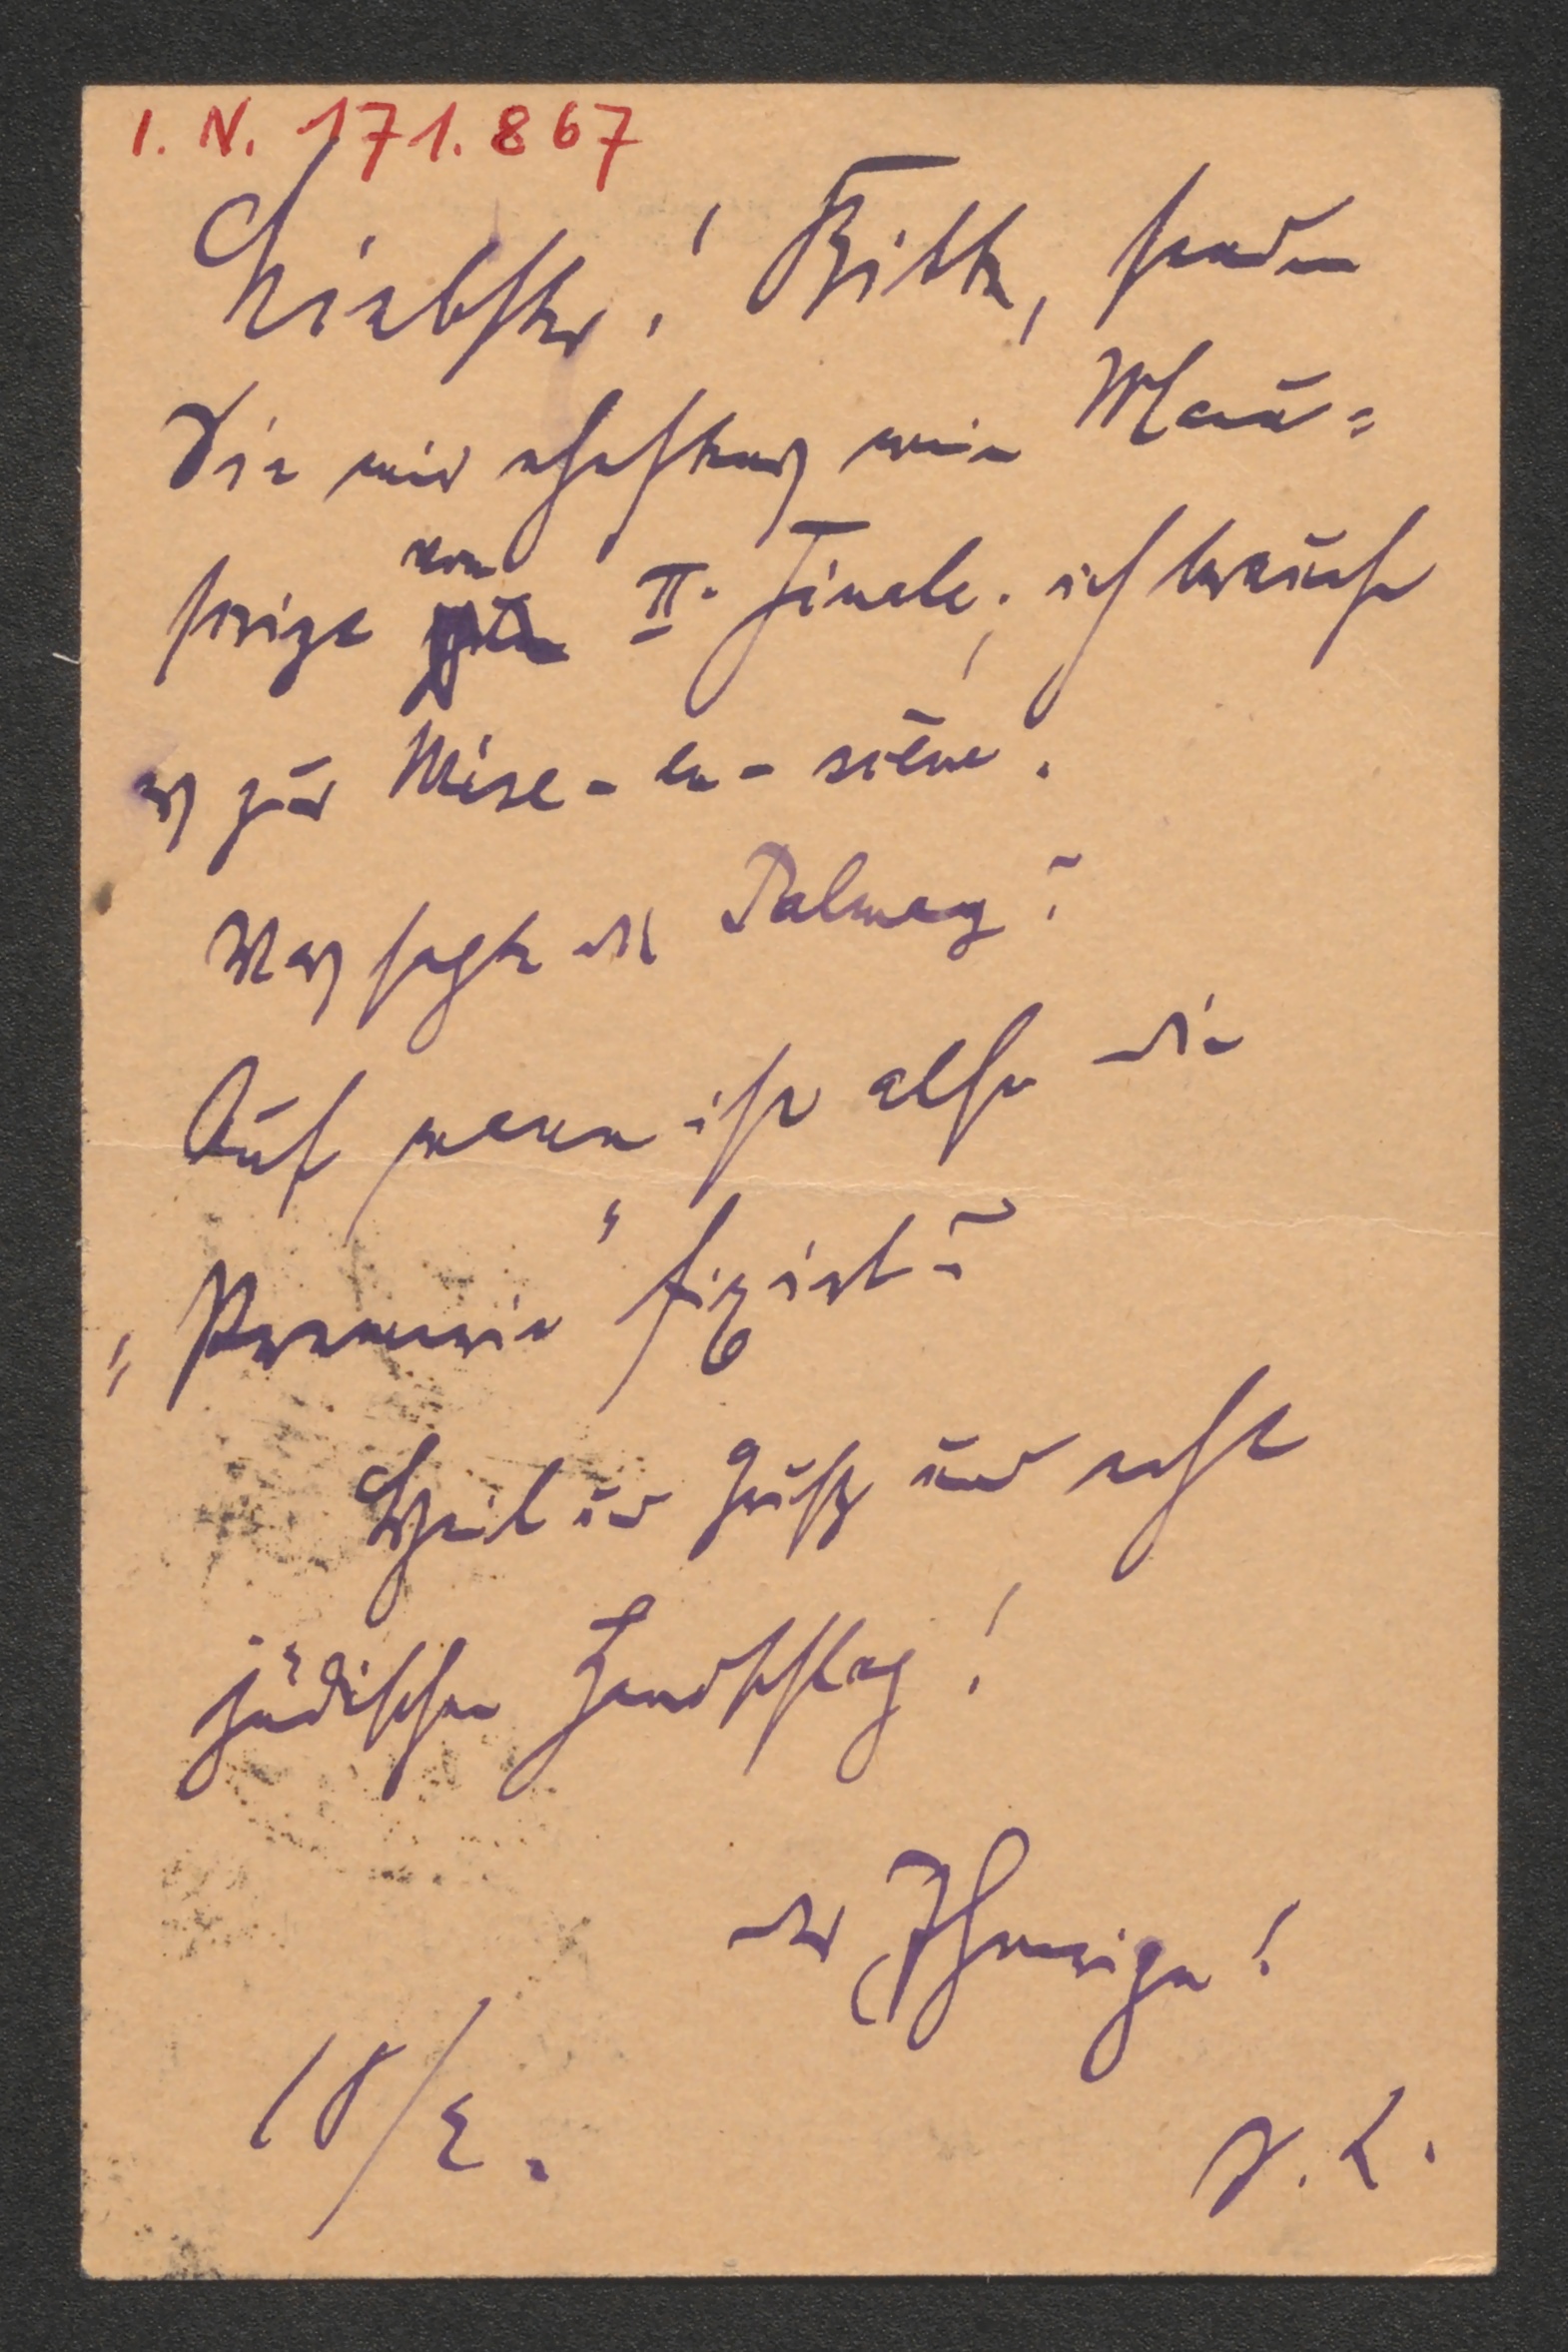 I. N. 171.867
Liebster! Bitte, senden
Sie mir ehestens mein Manu=
skript vom
II. Finale; ich brauche
es zur Mise-en-scène.
Was sagte die Palmay?
Auf wann ist also die
„Premiere“ fixirt?
Heil und Gruß und echt
jüdischen Handschlag!
der Ihrige!
18/2.
J. L.